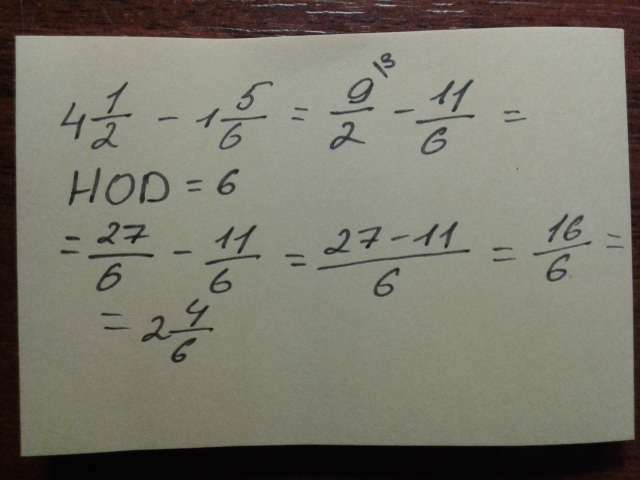 4 1/2 - 1 5/6 = 9\3/2 - 11/6 =
НОD = 6
= 27/6 - 11/6 = 27-11/6 = 16/6 =
= 2 4/6